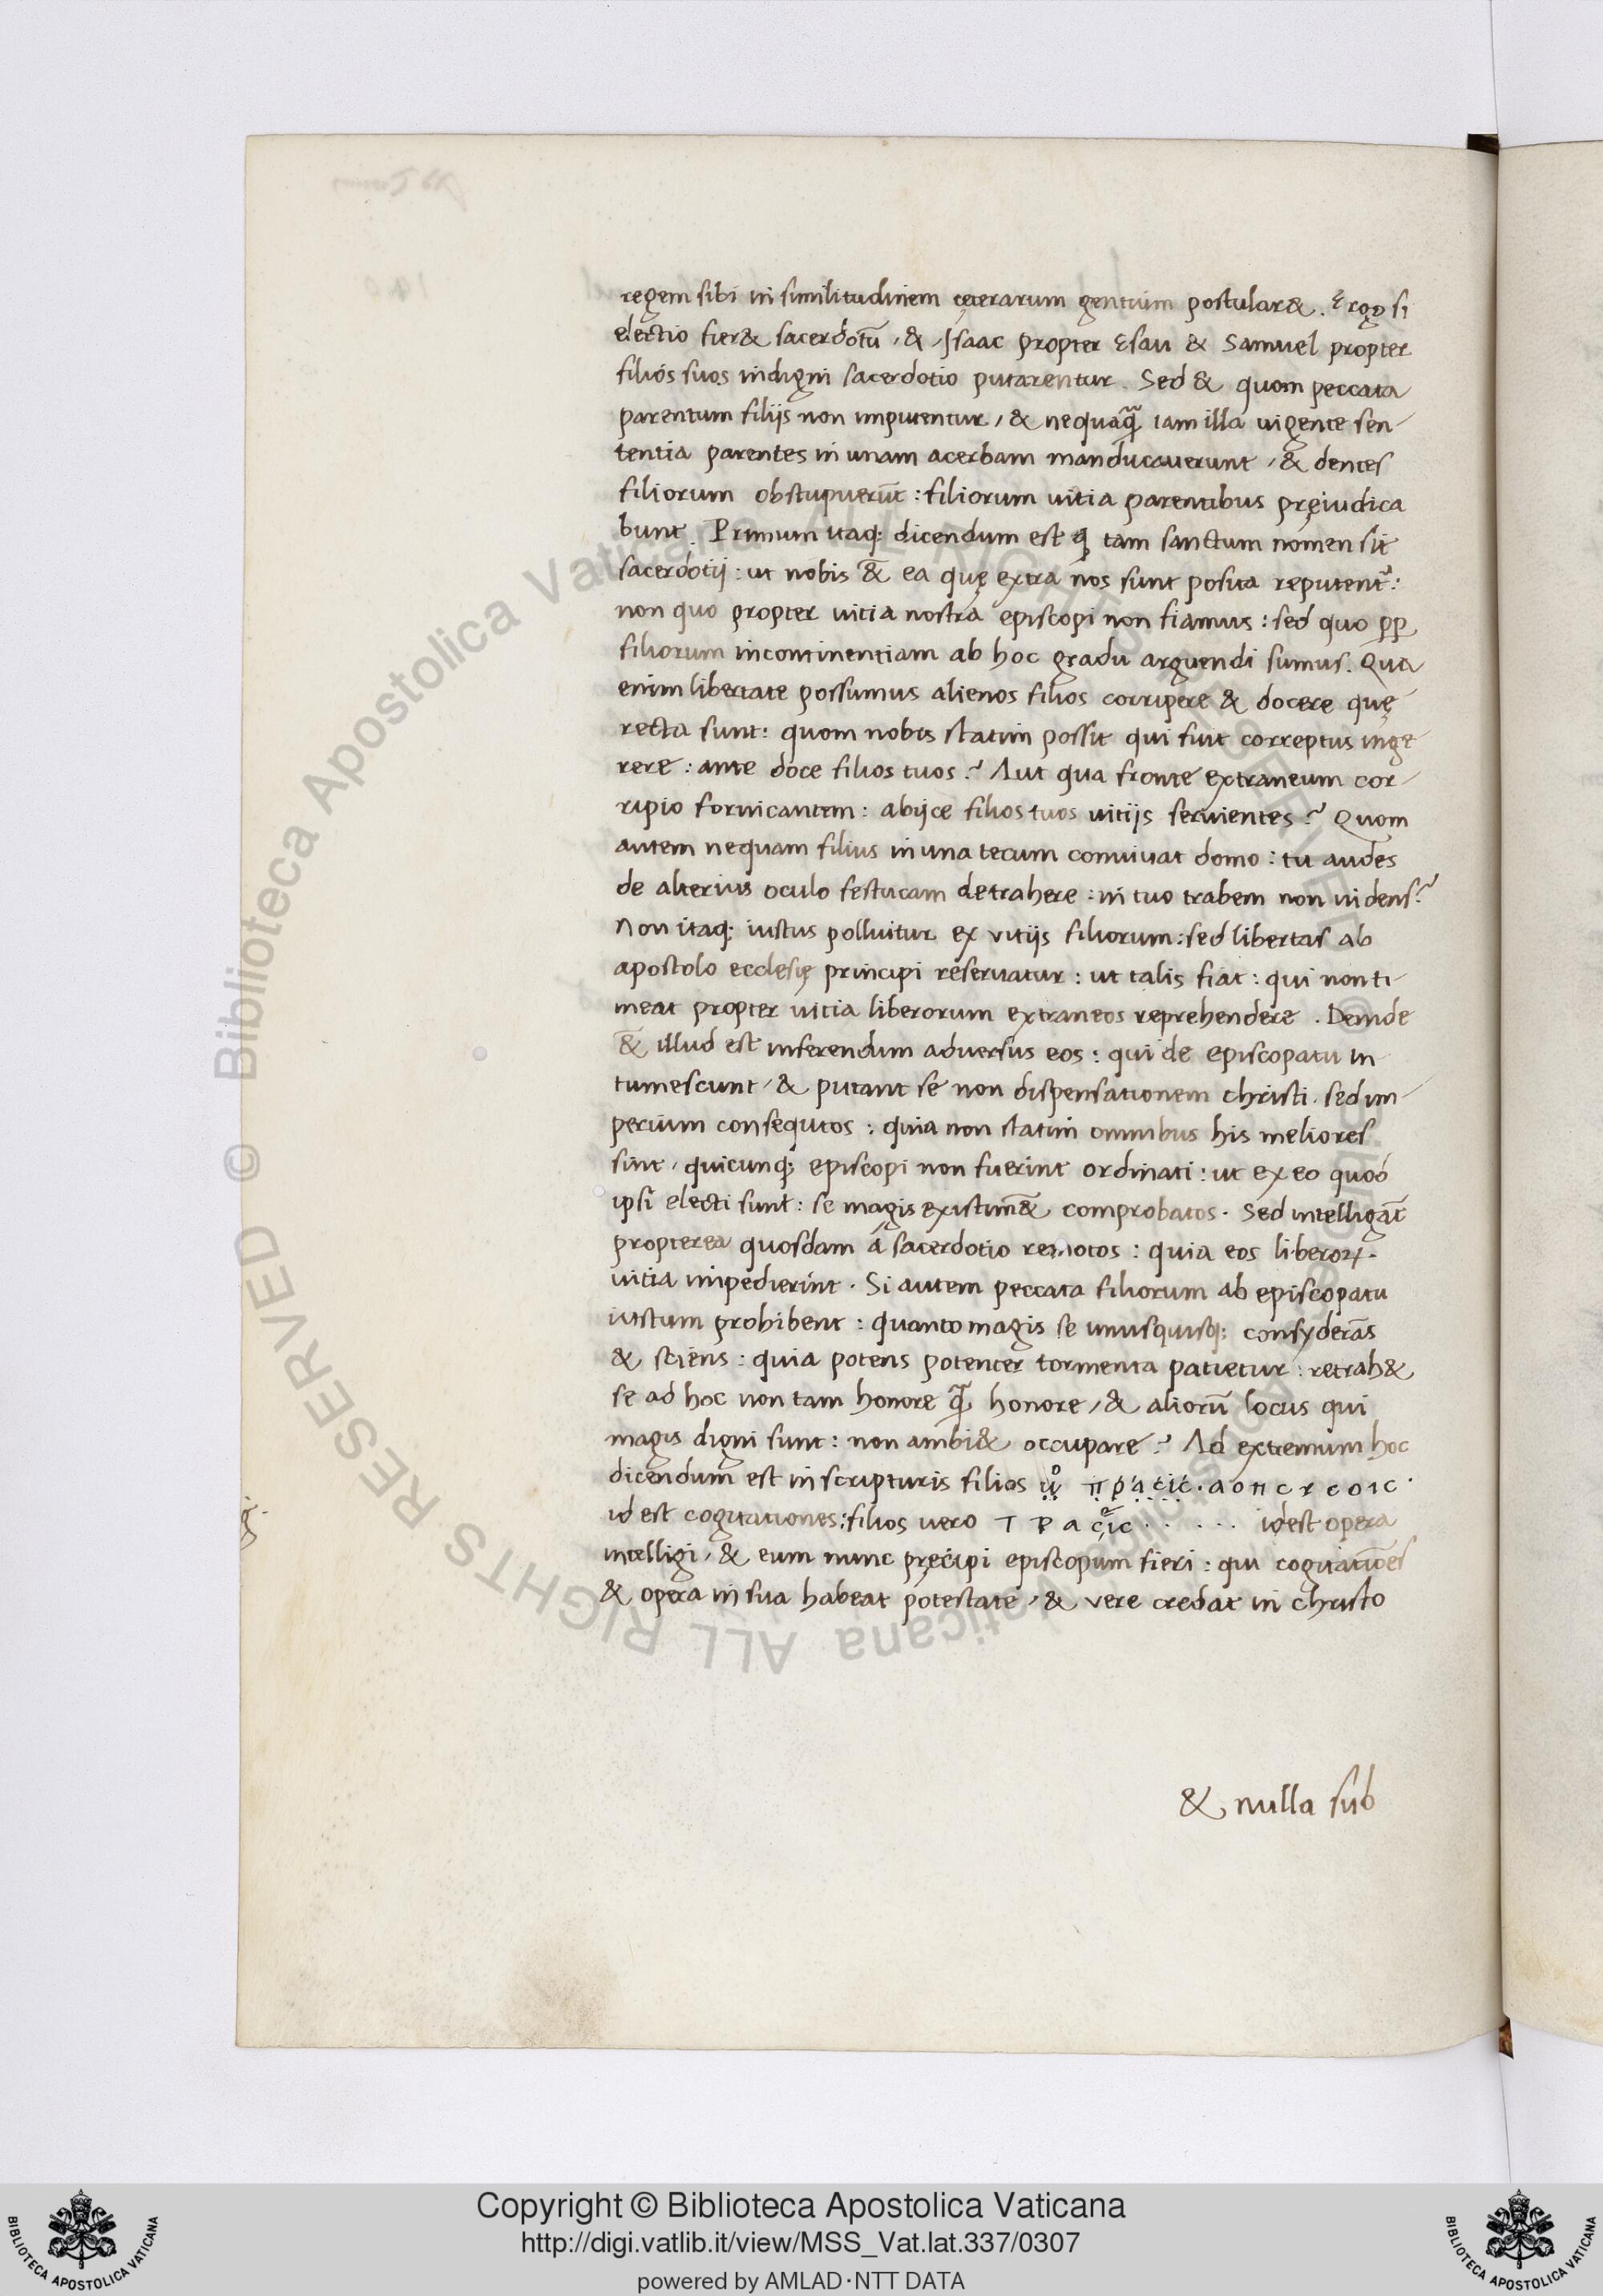 regem sibi in similitudinem ceterarum gentium postular&. Ergo si
electio fier& sacerdotū, &, Isaac propter Esau & Samuel propter
filios suos indigni sacerdotio putarentur. Sed & quom peccata
parentum filijs non imputentur, & nequaq̃ iam illa uigente sen-
tentia parentes in unam acerbam manducauerunt, & dentes
filiorum obstupuerūt: filiorum uitia parentibus pręiudica
bunt. Primum itaq; dicendum est q̨ tam sanctum nomen sit
sacerdotij: ut nobis & ea quę extra nos sunt posita reputent̃:
non quo propter uitia nostra episcopi non fiamus: sed quo ꝑꝑ
filiorum incontinentiam ab hoc gradu arguendi sumus. Qua
enim libertate possumus alienos filios corripere & docere quę
recta sunt: quom nobis statim possit qui fuit correptus inge
rere: ante doce filios tuos? Aut qua fronte extraneum cor-
ripio fornicantem: abijce filios tuos uitijs seruientes? Quom
autem nequam filius in una tecum conuiuat domo: tu audes
de alterius oculo festucam detrahere: in tuo trabem non uidens?
Non itaq; iustus polluitur ex uitijs filiorum: sed libertas ab
apostolo ecclesię principi reseruatur: ut talis fiat: qui non ti-
meat propter uitia liberorum extraneos reprehendere. Deinde
& illud est inferendum aduersus eos: qui de episcopatu in
tumescunt, & putant se non dispensationem christi. sed im-
perium consequtos: quia non statim omnibus his meliores
sint, quicunq; episcopi non fuerint ordinati: ut ex eo quod
ipsi electi sunt: se magis existim̄& comprobatos. Sed intelligāt
propterea quosdam á sacerdotio remotos: quia eos liberoꝝ.
uitia impedierint. Si autem peccata filiorum ab episcopatu
iustum prohibent: quanto magis se unusquisq; consyderās
& sciens: quia potens potenter tormenta patietur: retrah&
se ad hoc non tam honore q̃ honore, & aliorū locus qui
magis digni sunt: non ambi& occupare? Ad extremum hoc
dicendum est in scripturis filios
id est cogitationes: filios uero Τ Ρ α c ι c . . . . idest opera
intelligi, & eum nunc pręcipi episcopum fieri: qui cogitatiōes
& opera in sua habeat potestate, & vere credat in christo
& nulla sub
Copyright © Biblioteca Apostolica Vaticana
http://digi.vatlib.it/view/MSS_Vat.lat.337/0307
powered by AMLAD·NTT DATA
BIBLIOTECA APOSTOLICA VATICANA
BIBLIOTECA APOSTOLICA VATICANA
© Biblioteca Apostolica Vaticana ALL RIGHTS RESERVED